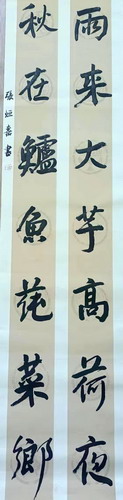 雨来大芋高荷夜
秋在鱸魚蒓菜鄉
張恒岳書